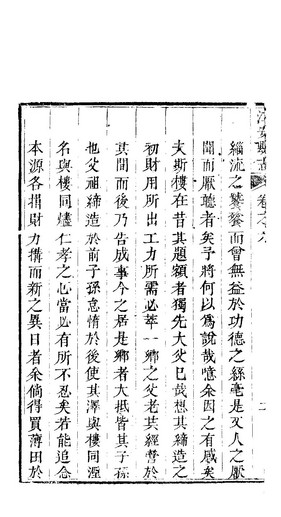 緇流之饕餮而曾無益於功德之絲毫是又人之厭
聞而厭聽者矣予將何以爲說哉噫余因之有感矣
夫斯樓在昔其題額者獨先大父已哉想其締造之
初財用所出工力所需必萃一鄉之父老其經營於
其間而後乃告成事今之居是鄉者大抵皆其子孫
也父祖締造於前子孫怠惰於後使其澤與樓同湮
名與樓同燼仁孝之心當必有所不忍矣若能追念
本源各捐財力搆而新之異日者余倘得買薄田於